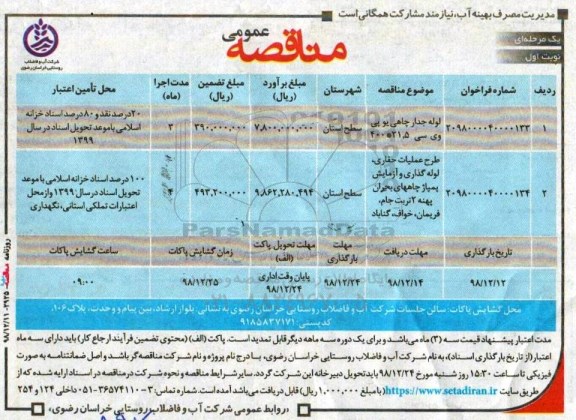 مدیریت مصرف بهینه آب، نیازمند مشارکت همگانی است
یک مرحله‌ای
نوبت اول
مناقصه عمومی
شرکت آب و فاضلاب
روستایی خراسان رضوی
ردیف | شماره فراخوان | موضوع مناقصه | شهرستان | مبلغ برآورد (ریال) | مبلغ تضمین (ریال) | مدت اجرا (ماه) | محل تأمین اعتبار
۱ | ۲۰۹۸۰۰۰۰۴۰۰۰۰۱۳۳ | لوله جدار چاهی یو پی وی سی ۲۱,۵*۴۰۰ | سطح استان | ۷,۸۰۰,۰۰۰,۰۰۰ | ۳۹۰,۰۰۰,۰۰۰ | ۳ | ۲۰ درصد نقد و ۸۰ درصد اسناد خزانه اسلامی با موعد تحویل اسناد در سال ۱۳۹۹
۲ | ۲۰۹۸۰۰۰۰۴۰۰۰۰۱۳۴ | طرح عملیات حفاری، لوله گذاری و آزمایش پمپاژ چاههای بحران پهنه ۲ تربت جام، فریمان، خواف، گناباد | سطح استان | ۹,۸۶۲,۲۸۰,۴۹۴ | ۴۹۳,۲۰۰,۰۰۰ | ۴ | ۱۰۰ درصد اسناد خزانه اسلامی با موعد تحویل اسناد در سال ۱۳۹۹ و از محل اعتبارات تملکی استانی، نگهداری
تاریخ بارگذاری | مهلت دریافت | مهلت بارگذاری | مهلت تحویل پاکت (الف) | زمان گشایش پاکات | ساعت گشایش پاکات
۹۸/۱۲/۱۲ | ۹۸/۱۲/۱۴ | ۹۸/۱۲/۲۴ | پایان وقت اداری ۹۸/۱۲/۲۴ | ۹۸/۱۲/۲۵ | ۰۹:۰۰
ParsNamadData
محل گشایش پاکات: سالن جلسات شرکت آب و فاضلاب روستایی خراسان رضوی به نشانی: بلوار ارشاد، بین پیام و وحدت، پلاک ۱۰۶، کدپستی: ۹۱۸۵۸۳۷۱۷۱
مدت اعتبار پیشنهاد قیمت سه (۳) ماه می‌باشد و برای یک دوره سه ماهه دیگر قابل تمدید است. پاکت (الف) (محتوی تضمین فرآیند ارجاع کار) باید دارای سه ماه
اعتبار (از تاریخ بارگذاری اسناد)، به نام شرکت آب و فاضلاب روستایی خراسان رضوی، با درج نام پروژه و نام شرکت مناقصه‌گر باشد و اصل ضمانتنامه به صورت
فیزیکی تا ساعت ۱۵:۳۰ روز شنبه مورخ ۹۸/۱۲/۲۴ باید تحویل دبیرخانه این شرکت گردد. سایر شرایط مناقصه و نحوه شرکت در مناقصه در اسناد ارایه شده که از
طریق سایت https://www.setadiran.ir (با مبلغ ۱,۰۰۰,۰۰۰ ریال) قابل دریافت می‌باشد آمده است. شماره تماس: ۳-۳۶۵۷۴۱۱۰-۰۵۱ داخلی ۱۲۴ و ۲۵۴
«روابط عمومی شرکت آب و فاضلاب روستایی خراسان رضوی»
روزنامه ۹۸/۱۲/۱۱-۲۹۲۵